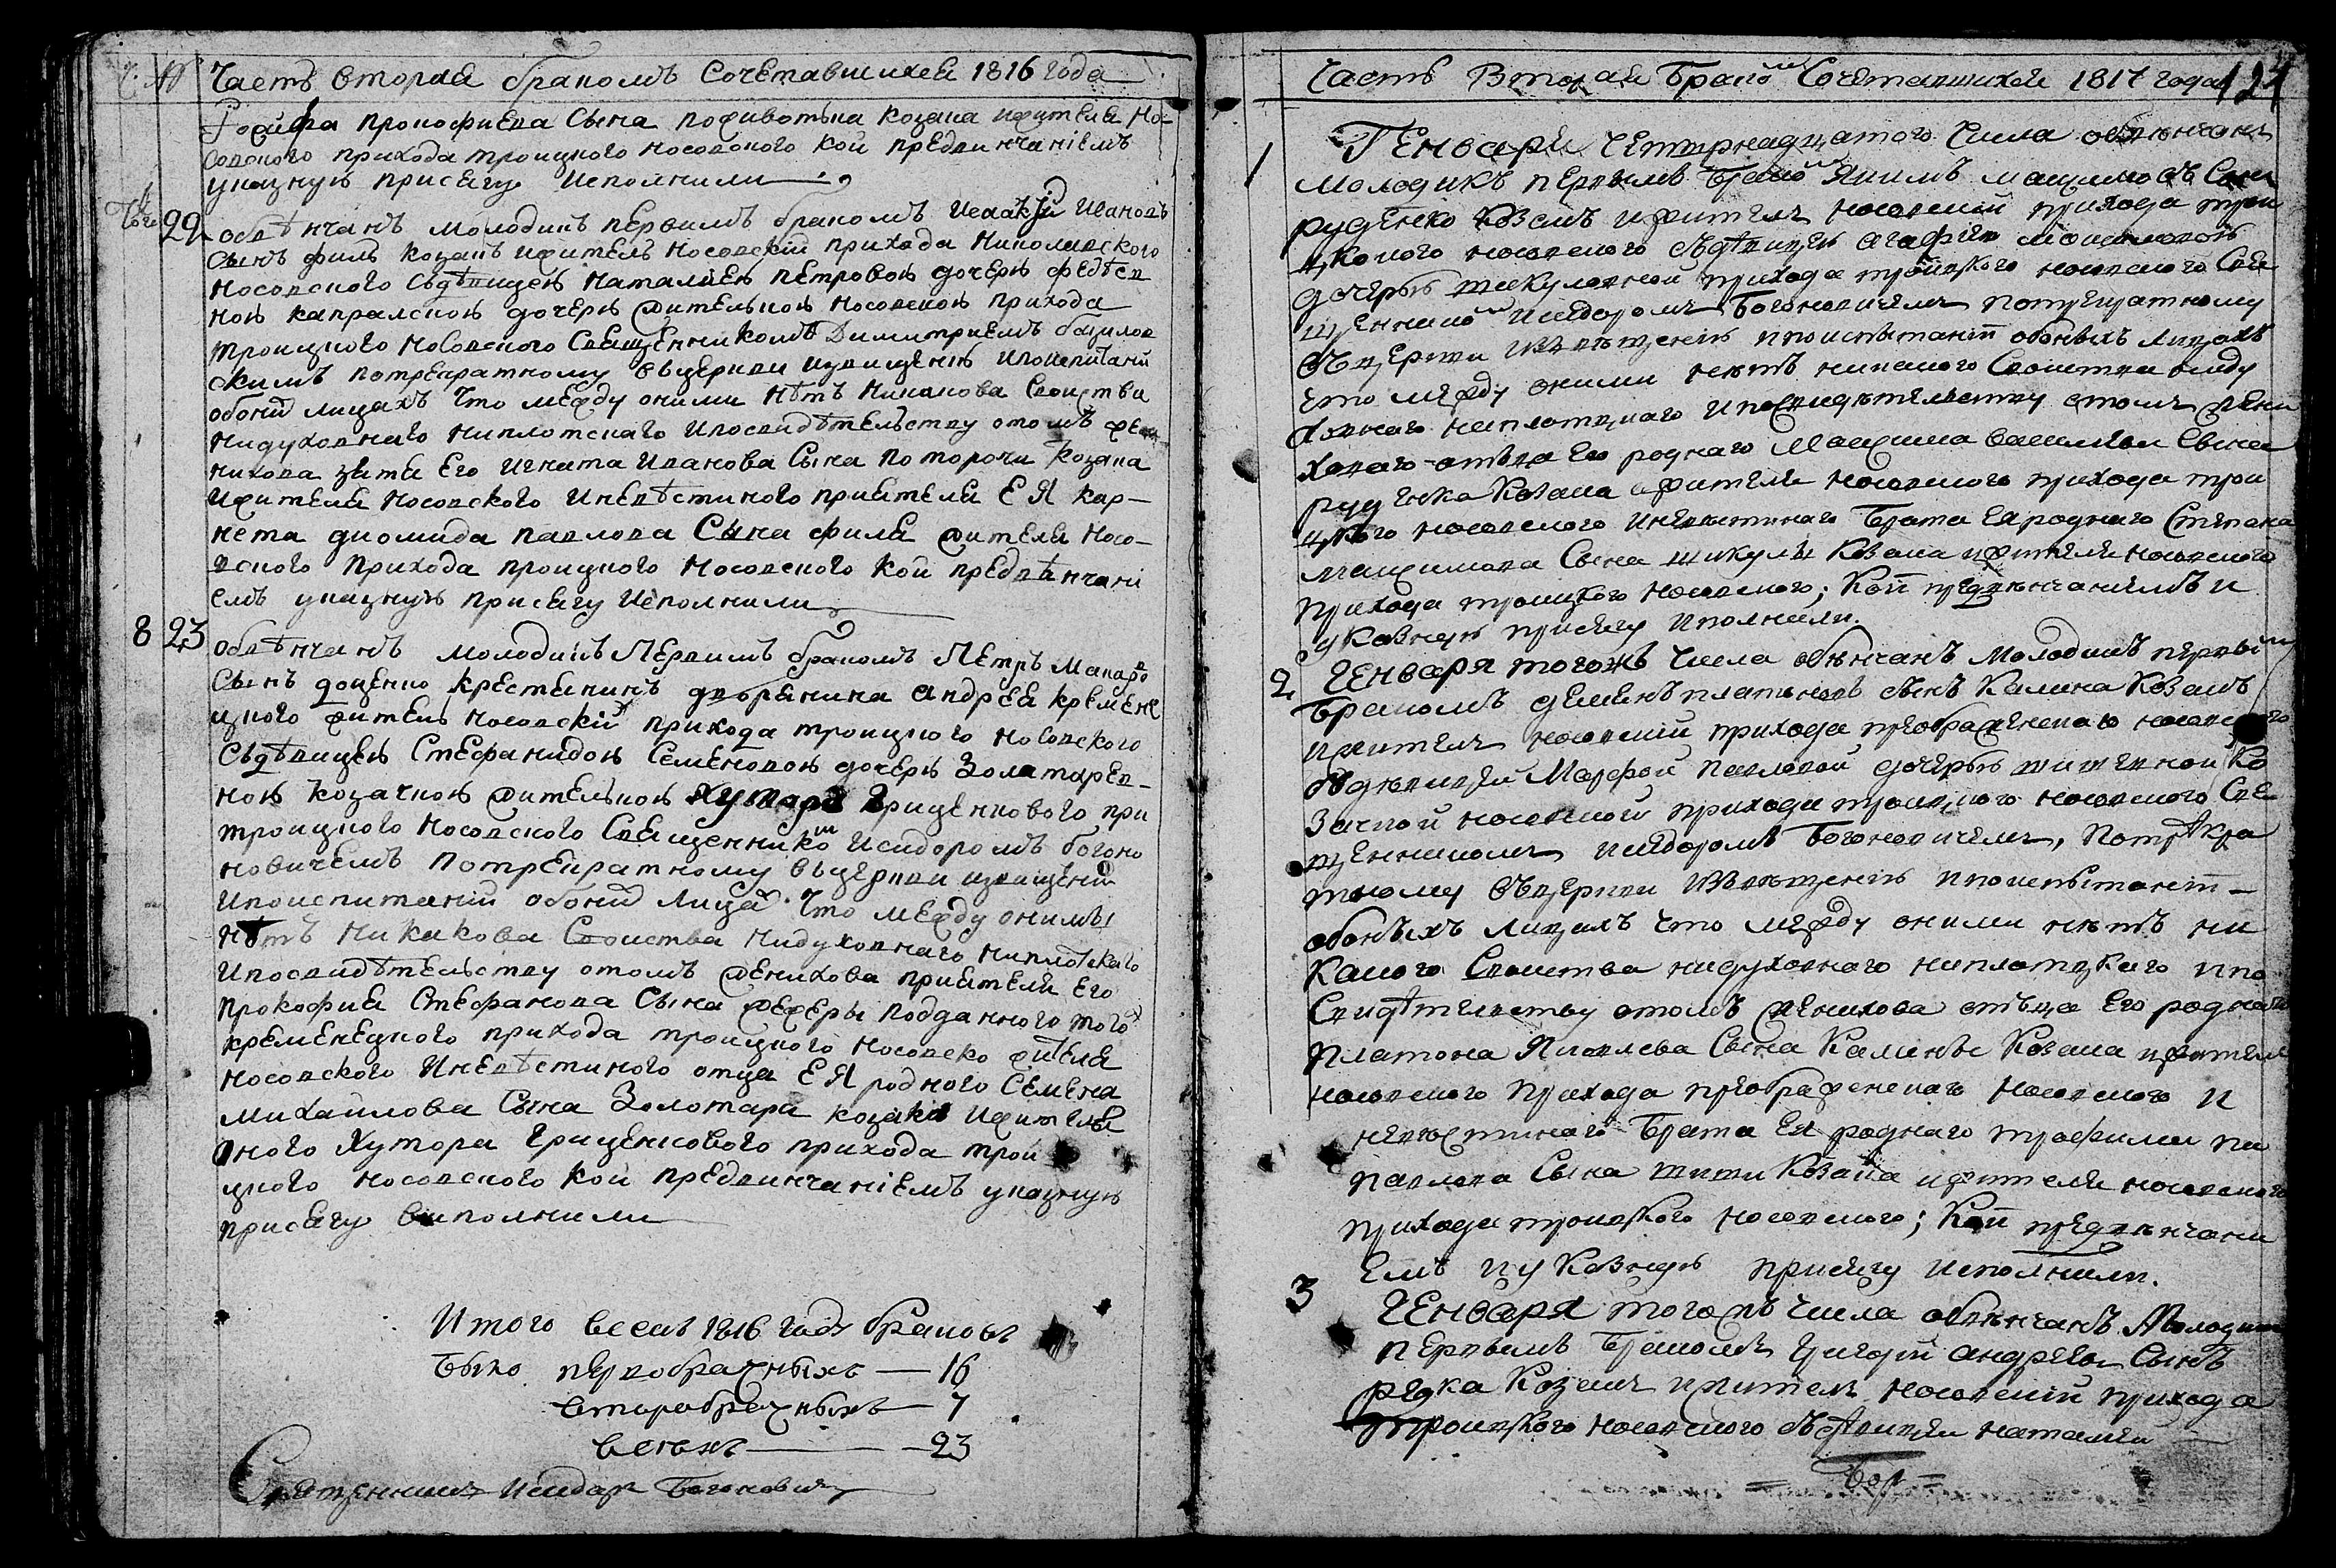 Ч. № Часть вторая бракомъ Сочетавшихся 1816 года
прокофиева Сына поживотька козака ижителя Но-
совского прихода троицкого носовского кои предвинчаніемъ
указную присягу исполнили
22 обвѣнчанъ молодикъ первимъ бракомъ Исакъ Ивановъ
Сынъ филь козакъ ижитель носовскій прихода Николаевского
Носовского Съдѣвицею Наталиею петровою дочерю
ною капралскою дочерю жительною носовскою прихода
троицкого Носовского Священникомъ Димитриемъ
скимъ потрекратному въцеркви извищению ипоиспитаніи
обоихъ лицахъ Что между оними Нѣтъ Никакова Своиства
Нидуховнаго Ниплотскаго Ипосвидѣтельству отомъ жени
Никова зятя Его Игната Иванова Сына Поторочи Козака
Ижителя Носовского Иневѣстиного приятеля ЕЯ Кар-
нета диомида павлова Сына филя жителя Носо-
вского Прихода троицкого Носовского Кои предвѣнчані
емъ указную присягу Исполнили
8 23 обвѣнчанъ молодикъ Первимъ бракомъ Петръ Макаро
Сынъ доценко крестянинъ дворянина андрея кремене
цкого житель Носовскій прихода троицкого Носовского
Съдѣвицею Стефанидою Семеновою дочерю Золатарев-
ною козачкою жительною хутара Грищенкового при
троицкого Носовского Священнико Исидоромъ богоно
новичемъ потрекратному въцеркви извищению
Ипоиспитаніи обоихъ Лица. Что между онимы
Нѣтъ Никакова Своиства Нидуховнаго Ниплотскаго
Ипосвидѣтельству отомъ женихова приятеля Его
Прокофия Стефанова Сына жежеры подданного того
кременецкого прихода троицкого Носовско жителя
Носовского Иневѣстиного отца ЕЯ родного Семена
Михайлова Сына Золотаря козака Ижителя
оного Хутора Грищенкового прихода трои
цкого Носовского кои предвинчаніемъ указную
присягу виполнили
Итого всехъ 1816 году браковъ
Было первобрачныхъ — 16
второбрачныхъ — 7
всехъ — 23
Священникъ Исидоръ Богоновичъ
Часть Вторая Брако Сочетавшихся 1817 года 124
1 Генваря Четырнадцатого Числа обвѣнчанъ
молодикъ первымъ Брако Якимъ максимовъ Сынъ
руденко Козакъ ижитель носовскій прихода трои
цкого носовского съдѣвицею Агафиею
дочерью шекуловною прихода троицкого носовского Свя
щенникомъ Исидоромъ Богоновичемъ потрекратному
въцеркви извѣщенію ипоиспытаніи обоныхъ лицахъ
что между оними нѣтъ никакого Своиства ниду
ховнаго ниплотцкаго ипосвидѣтельству отомъ жени
ховаго отца Его роднаго Максима василиева Сына
руденка Козака ижителя носовского прихода трои
цкого носовского иневѣстинаго Брата Ея роднаго Степана
максимова Сына шикулы Козака ижителя носовского
прихода троицкого носовского; Кои предвѣнчаніемъ и
указную присягу иполнили.
2 Генваря тогожъ Числа обвѣнчанъ молодикъ первымъ
Бракомъ платоновъ сынъ Калина Козакъ
ижитель носовскій прихода преображенскаго носовского
съдѣвицей Марфой павловой дочерью титевной Ко
зачкой носовской прихода троицкого носовского Свя
щенникомъ исидоромъ Богоновичемъ, потрѣкра
тному въцеркви извѣщенію ипоиспытаніи —
обоныхъ лицахъ что между оними нѣтъ ни
какого Своиства нидуховнаго ниплотцкаго ипо
Свидѣтельству отомъ женихова отьца Его роднаго
платона Яковлева Сына Калины Козака ижителя
носовского прихода преображенскаго носовского и
невѣстинаго Брата Ея роднаго трофима па
павлова Сына тити Козака ижителя носовского
прихода троицкого носовского; Кои предвѣнчани
емъ иуказную присягу исполнили.
3 Генваря тогожъ числа обвѣнчанъ Молодикъ
первымъ Бракомъ григорій андреевъ Сынъ
редка Козакъ ижитель носовскій прихода
троицкого носовского съдѣвицеи наталіи